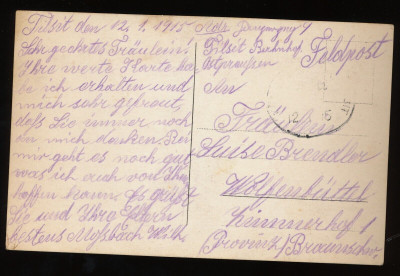 Tilsit den 12. 1. 1915
Sehr geehrtes Fräulein!
Ihre werte Karte ha
be ich erhalten und
mich sehr gefreut,
daß Sie immer noch
an mich denken. Bei
mir geht es noch gut
was ich auch von Ihnen
hoffen kann. Es grüßt
Sie und Ihre Eltern
bestens Mosbach Wilh.
Adr.
Tilsit Bahnhof
Ostpreußen
Feldpost
An
Fräulein
Luise Brendler
Wolfenbüttel
Zimmerhof 1
Provinz/Braunschw.
12 15